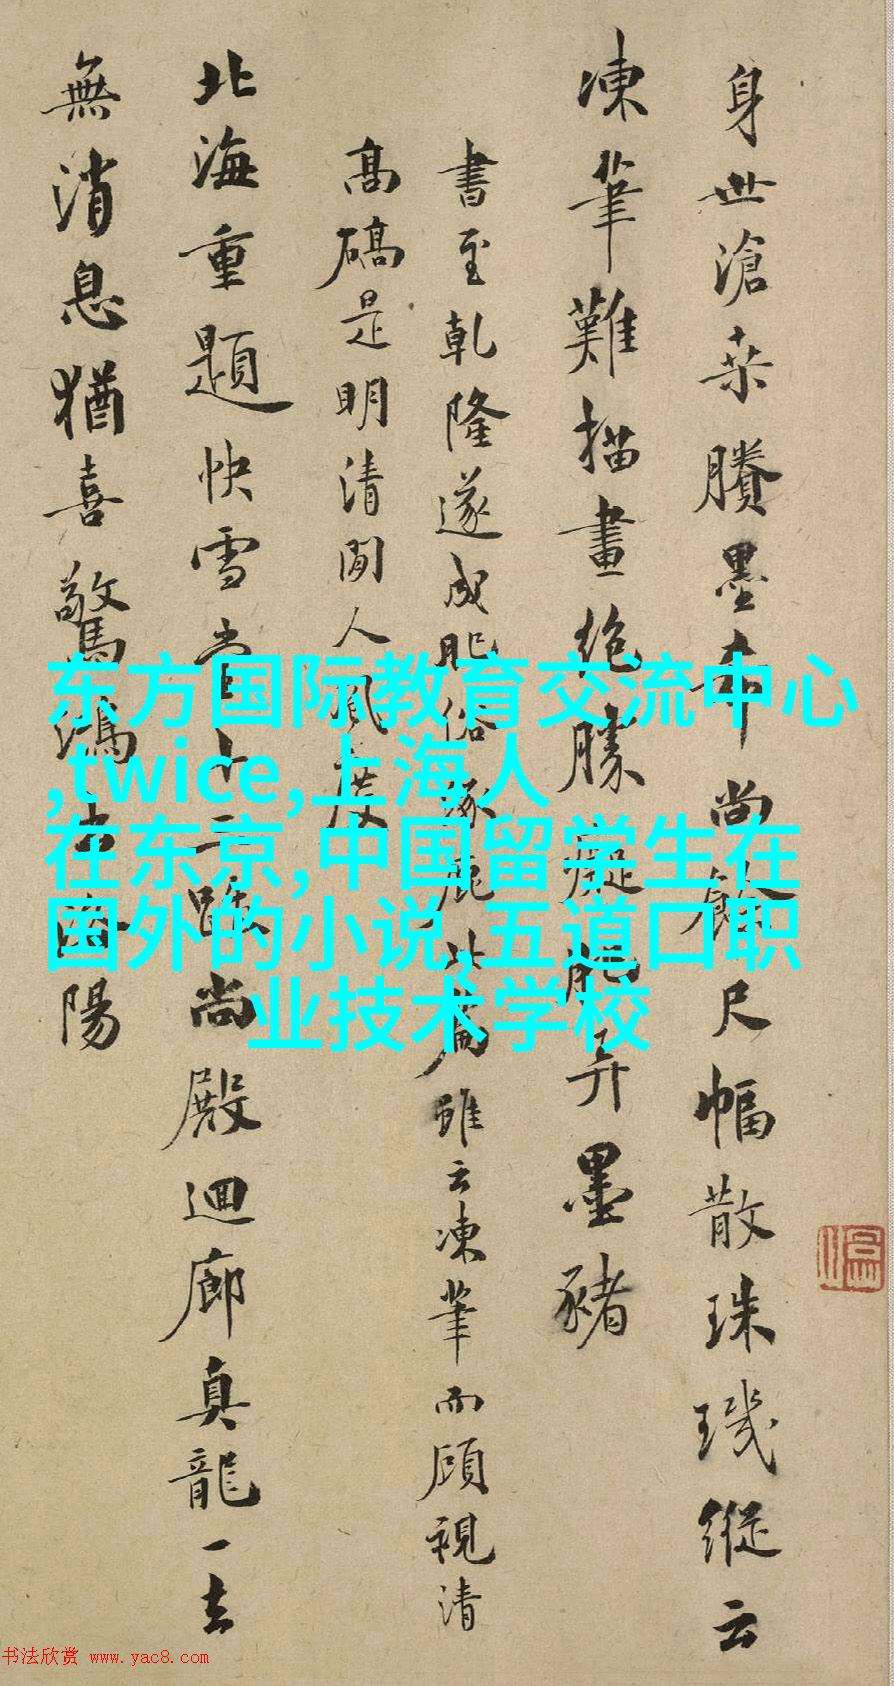 身世滄桑賸墨
尚餘尺幅散珠璣縱云
凍筆難描畫絶勝癡肥弄墨豬
書至乾隆遂成肥俗
篇雖云凍筆而顧視清
高礄是明清間人風度
北海重題快雪堂
尚殿迴廊真龍一去
無消息猶喜驚鴻
陽
东方国际教育交流中心
,twice,上海人
在东京,中国留学生在
国外的小说,五道口职
业技术学校
书法欣赏 www.yac8.com